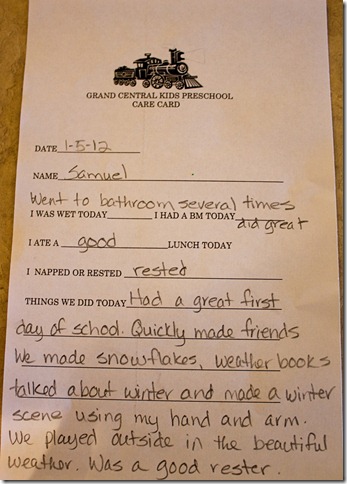 GRAND CENTRAL KIDS PRESCHOOL
CARE CARD
DATE 1-5-12
NAME Samuel
Went to bathroom several times
I WAS WET TODAY I HAD A BM TODAY did great
I ATE A good LUNCH TODAY
I NAPPED OR RESTED rested
THINGS WE DID TODAY Had a great first
day of school. Quickly made friends
We made snowflakes, weather books
talked about winter and made a winter
scene using my hand and arm.
We played outside in the beautiful
weather. Was a good rester.